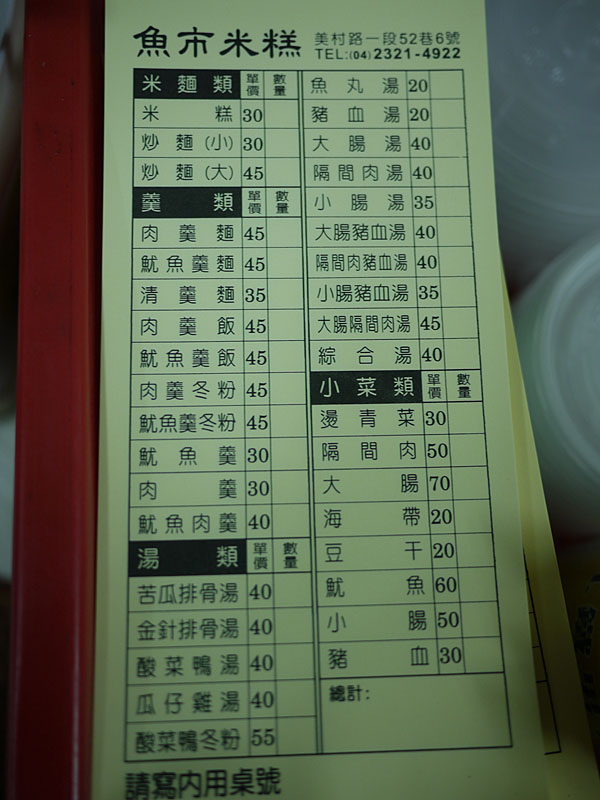 魚市米糕 美村路一段52巷6號
TEL:(04)2321-4922
米麵類 單價 數量
米糕 30
炒麵(小) 30
炒麵(大) 45
羹類 單價 數量
肉羹麵 45
魷魚羹麵 45
清羹麵 35
肉羹飯 45
魷魚羹飯 45
肉羹冬粉 45
魷魚羹冬粉 45
魷魚羹 30
肉羹 30
魷魚肉羹 40
湯類 單價 數量
苦瓜排骨湯 40
金針排骨湯 40
酸菜鴨湯 40
瓜仔雞湯 40
酸菜鴨冬粉 55
魚丸湯 20
豬血湯 20
大腸湯 40
隔間肉湯 40
小腸湯 35
大腸豬血湯 40
隔間肉豬血湯 40
小腸豬血湯 35
大腸隔間肉湯 45
綜合湯 40
小菜類 單價 數量
燙青菜 30
隔間肉 50
大腸 70
海帶 20
豆干 20
魷魚 60
小腸 50
豬血 30
總計:
請寫內用桌號